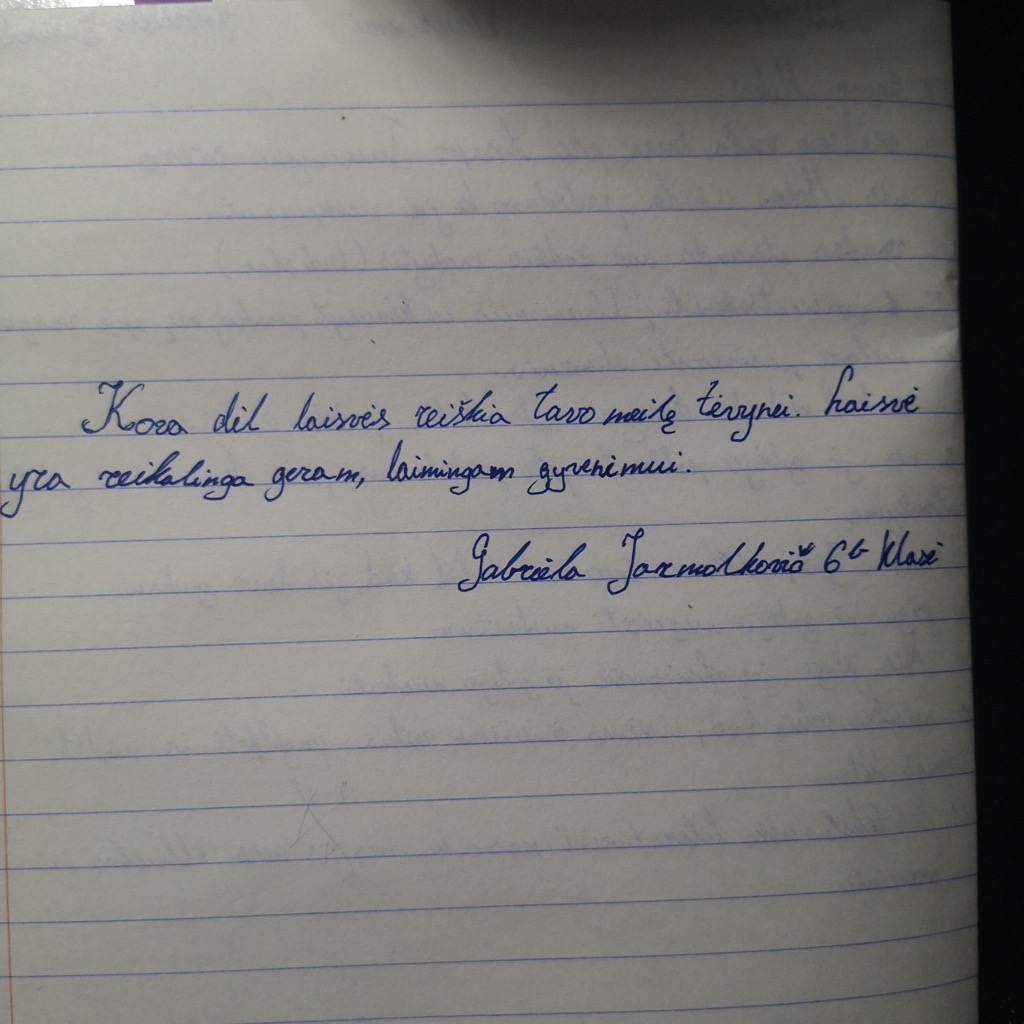 Kova dėl laisvės reiškia tavo meilę tėvynei. Laisvė
yra reikalinga geram, laimingam gyvenimui.
Gabriela Jarmolkovič 6b klasė